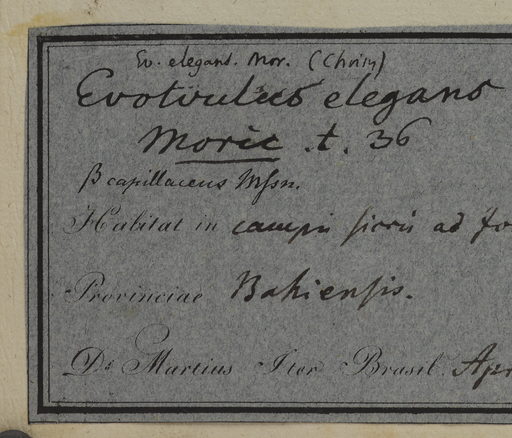 Ev. elegans. Mor. (Choisy)
Evolvulus elegans
Moric. t. 36
β capillaceus Mssn.
Habitat in campis siccis ad Jo
Provinciae Bahiensis.
Dr. Martius Iter Brasil. Apr